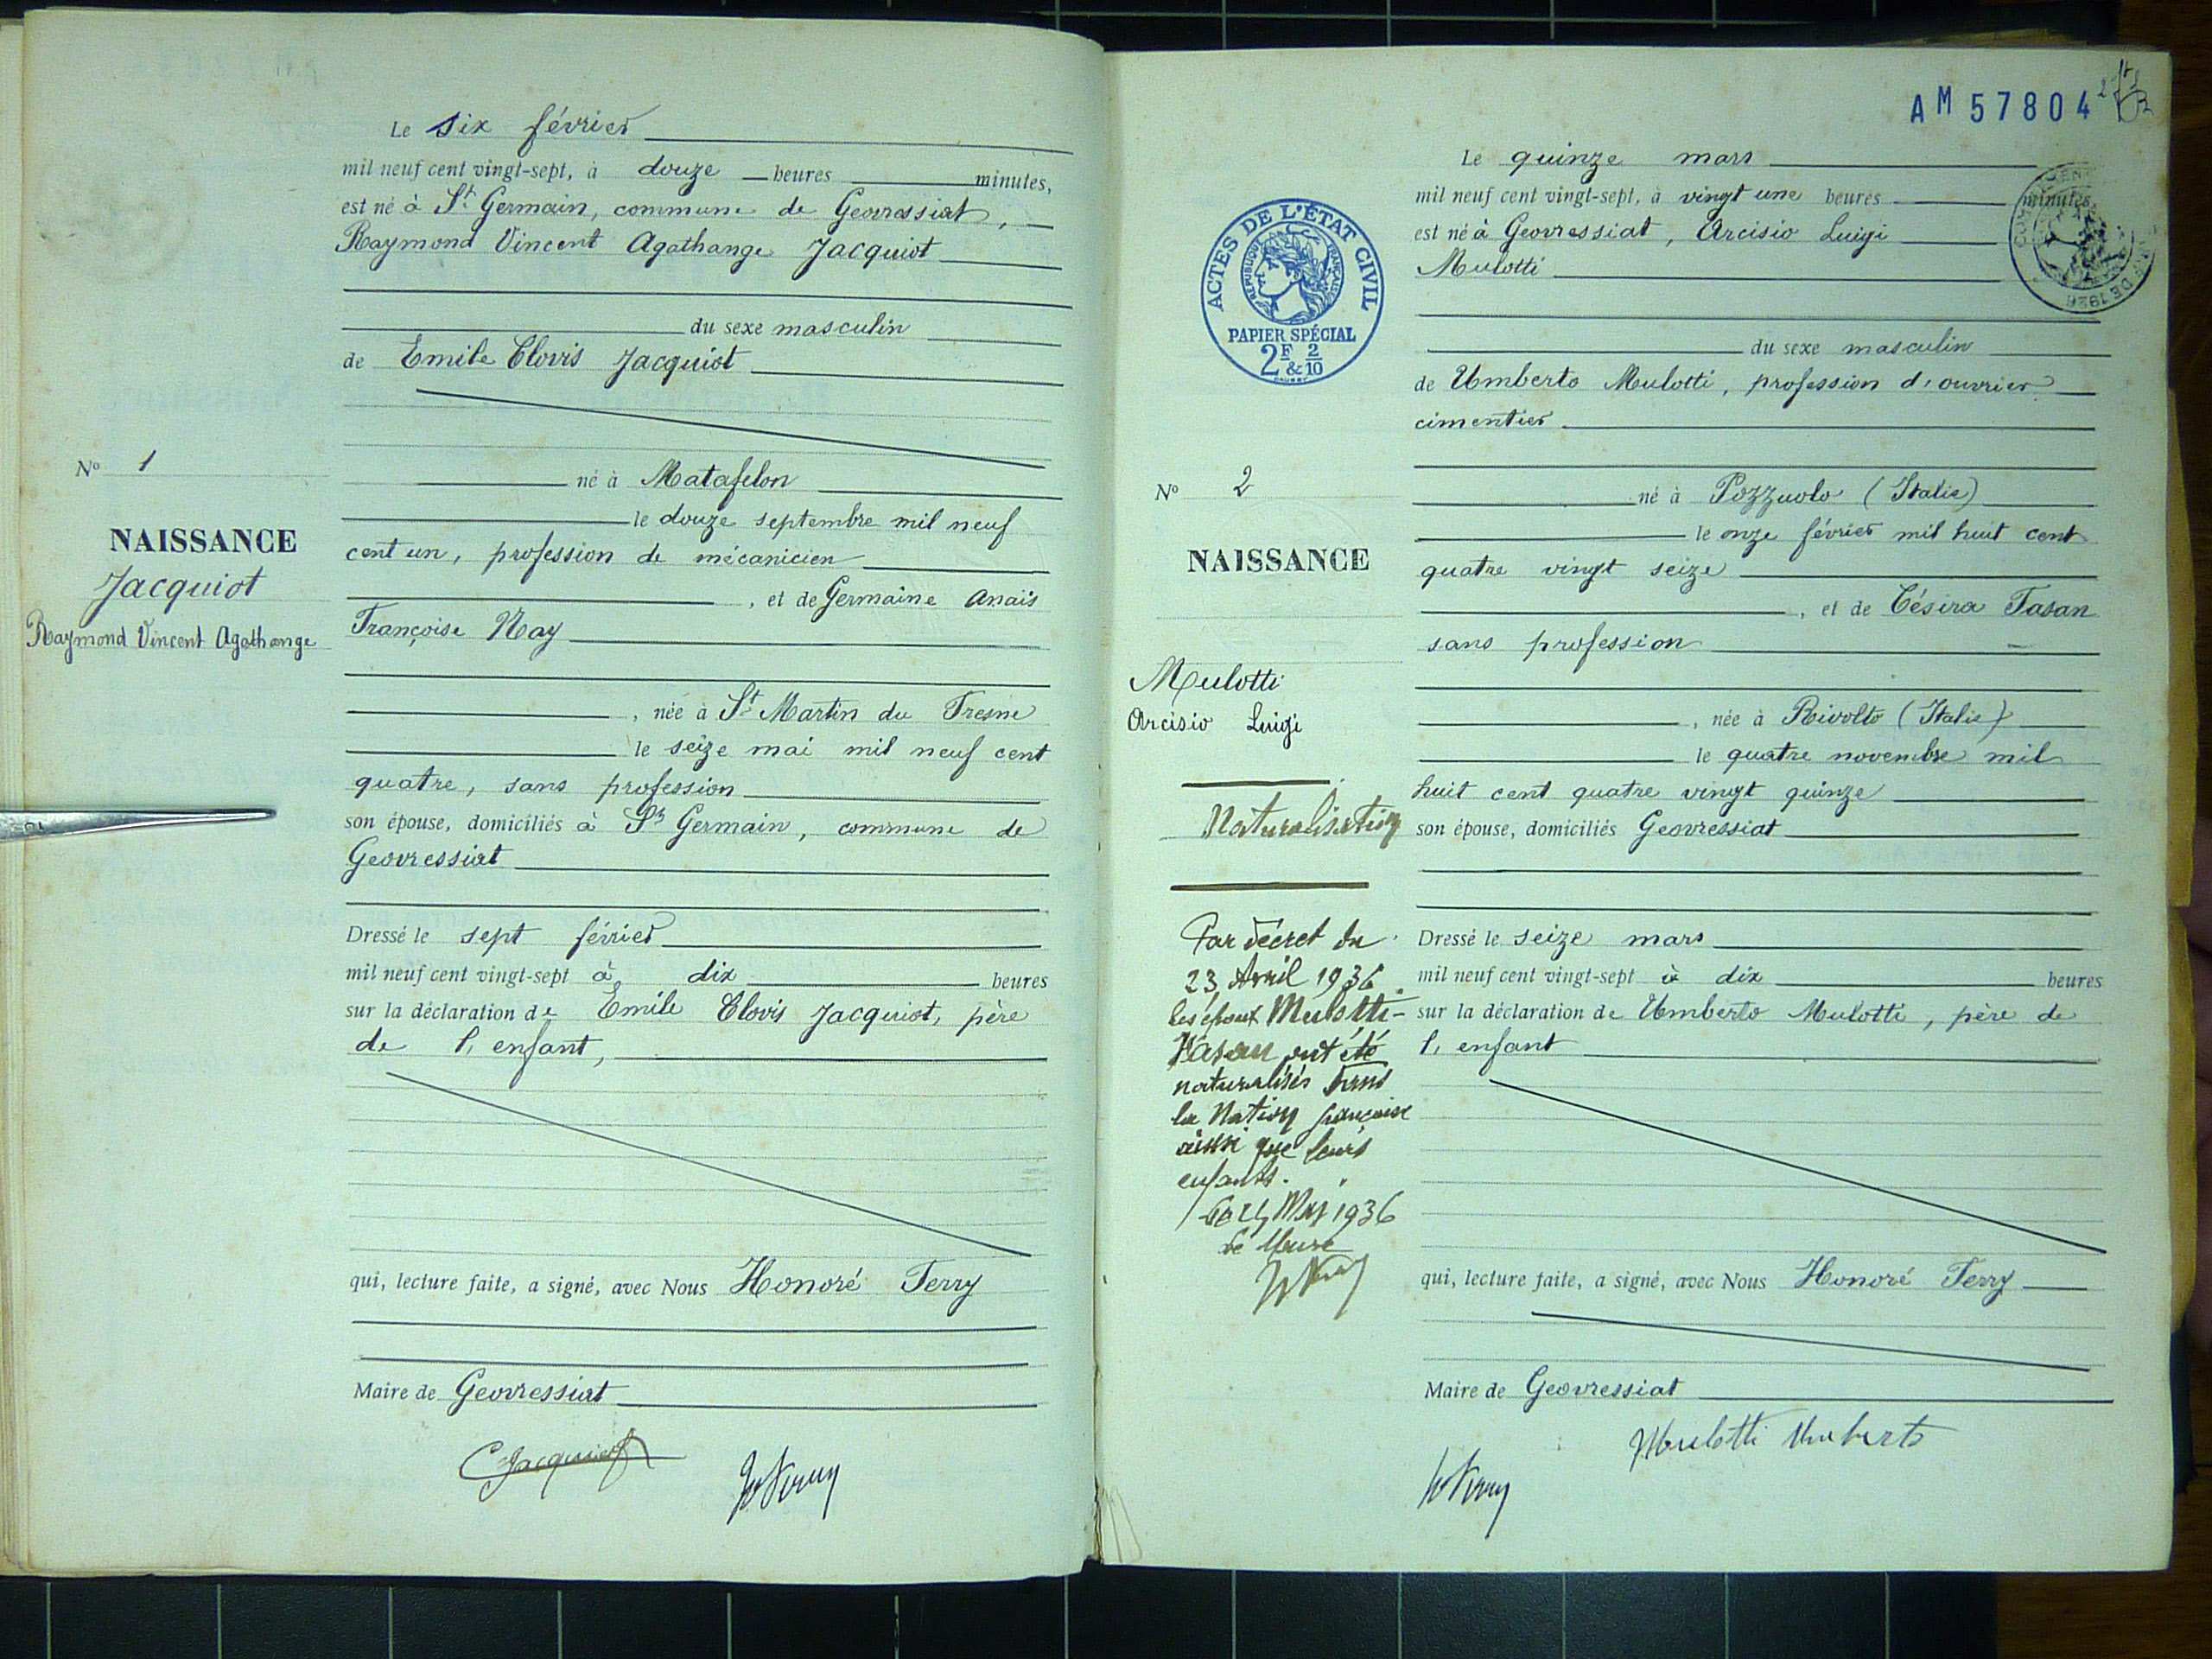 Le six février
mil neuf cent vingt-sept, à douze heures minutes,
est né à St Germain, commune de Geovressiat,
Raymond Vincent Agathange Jacquiot
du sexe masculin
de Emile Clovis Jacquiot
né à Matafelon
le douze septembre mil neuf
cent un, profession de mécanicien
, et de Germaine Anaïs
Françoise Nay
, née à St Martin du Fresne
le seize mai mil neuf cent
quatre, sans profession
son épouse, domiciliés à St Germain, commune de
Geovressiat
Dressé le sept février
mil neuf cent vingt-sept à dix heures
sur la déclaration de Emile Clovis Jacquiot, père
de l'enfant,
qui, lecture faite, a signé, avec Nous Honoré Ferry
Maire de Geovressiat
CJacquiot
No 1
NAISSANCE
Jacquiot
Raymond Vincent Agathange
AM 57804
ACTES DE L'ÉTAT CIVIL
RÉPUBLIQUE FRANÇAISE
PAPIER SPÉCIAL
2F & 2/10
No 2
NAISSANCE
Mulotti
Arcisio Luigi
Naturalisation
Par décret du
23 Avril 1936
les époux Mulotti-
Tasan ont été
naturalisés dans
la Nation française
ainsi que leurs
enfants.
Mai 1936
Le Maire
Le quinze mars
mil neuf cent vingt-sept, à vingt une heures minutes,
est né à Geovressiat, Arcisio Luigi
Mulotti
du sexe masculin
de Umberto Mulotti, profession d'ouvrier
cimentier
né à Pozzuolo (Italie)
le onze février mil huit cent
quatre vingt seize
, et de Césira Tasan
sans profession
, née à Rivolto (Italie)
le quatre novembre mil
huit cent quatre vingt quinze
son épouse, domiciliés Geovressiat
Dressé le seize mars
mil neuf cent vingt-sept à dix heures
sur la déclaration de Umberto Mulotti, père de
l'enfant
qui, lecture faite, a signé, avec Nous Honoré Ferry
Maire de Geovressiat
Mulotti Umberto